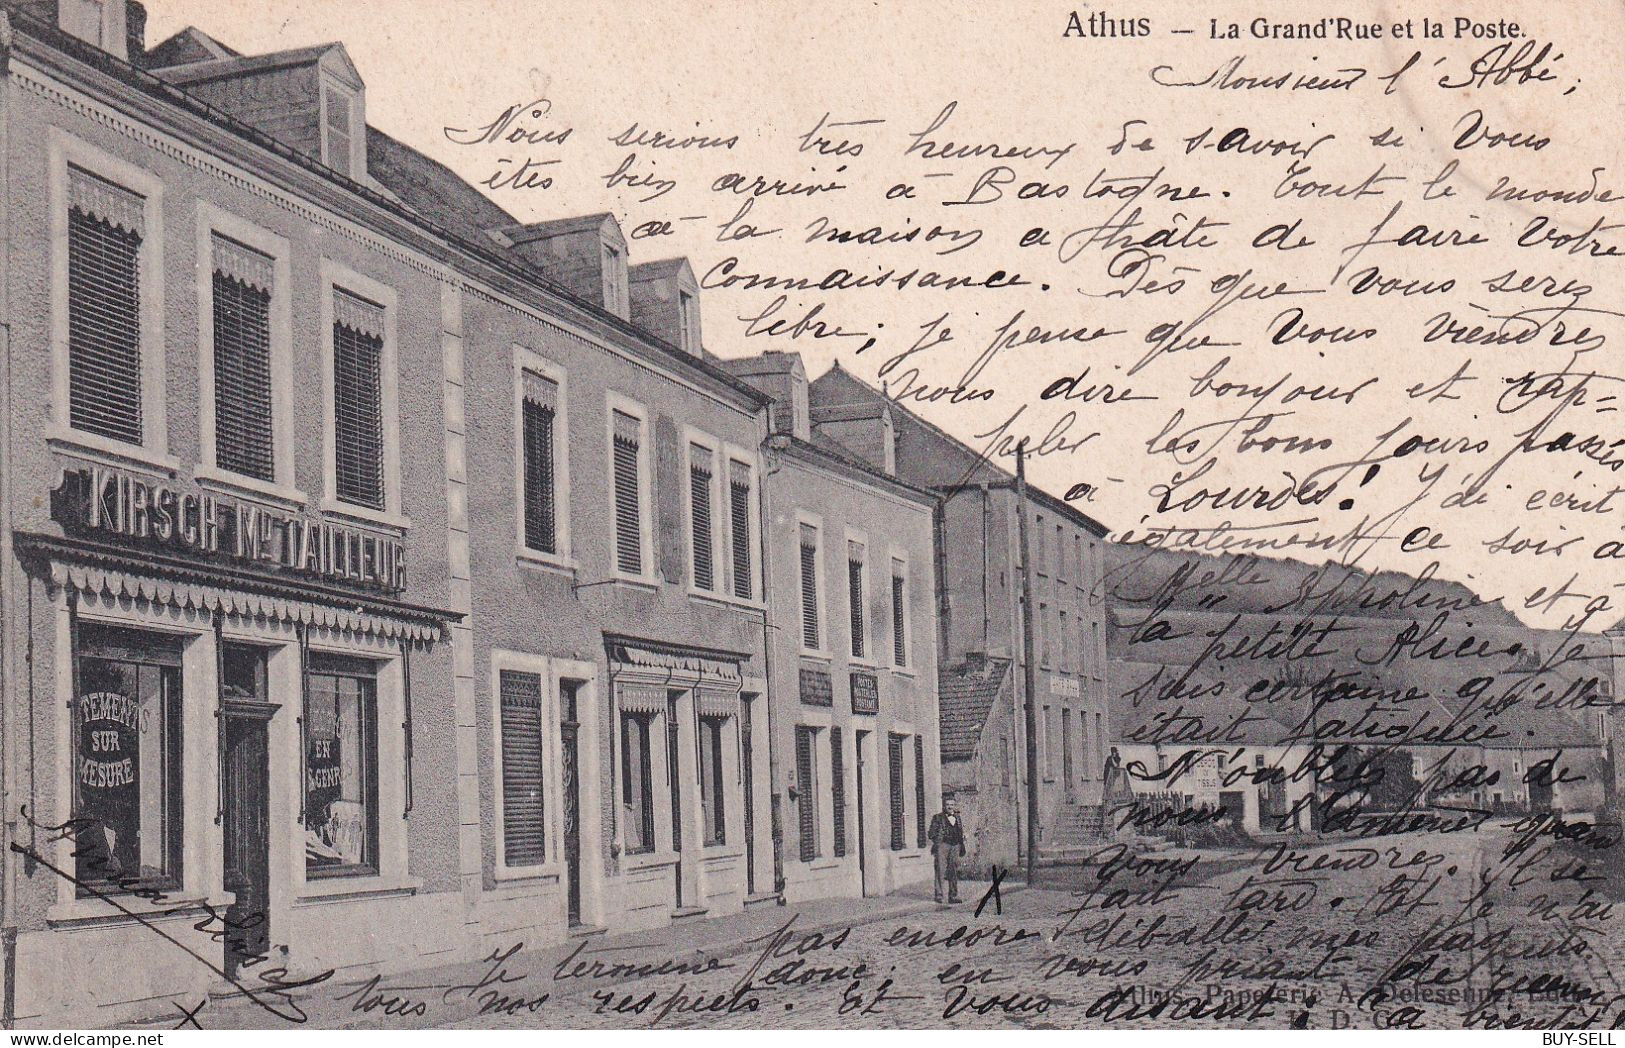 Athus — La Grand'Rue et la Poste.
Monsieur l'Abbé,
Nous serions très heureux de savoir si Vous
êtes bien arrivé à Bastogne. Tout le monde
à la maison a hâte de faire Votre
connaissance. Dès que vous serez
libre, je pense que Vous viendrez
nous dire bonjour et rap=
peler les bons jours passés
à Lourdes! J'ai écrit
également ce soir à
Melle Apholine et à
la petite Alice. Je
suis certaine qu'elle
était fatiguée.
N'oubliez pas de
nous l'amener quan
vous viendrez. Il se
fait tard. Et je n'ai
pas encore déballé mes paquets.
Je termine donc, en vous priant de recevoir
tous nos respects. Et Vous disant: à bientôt!
KIRSCH Md TAILLEUR
TEMENTS
SUR
MESURE
EN
GENR
POSTES
Athus, Papeterie A. Delesenne, Edit.
H. D. G.
BUY-SELL